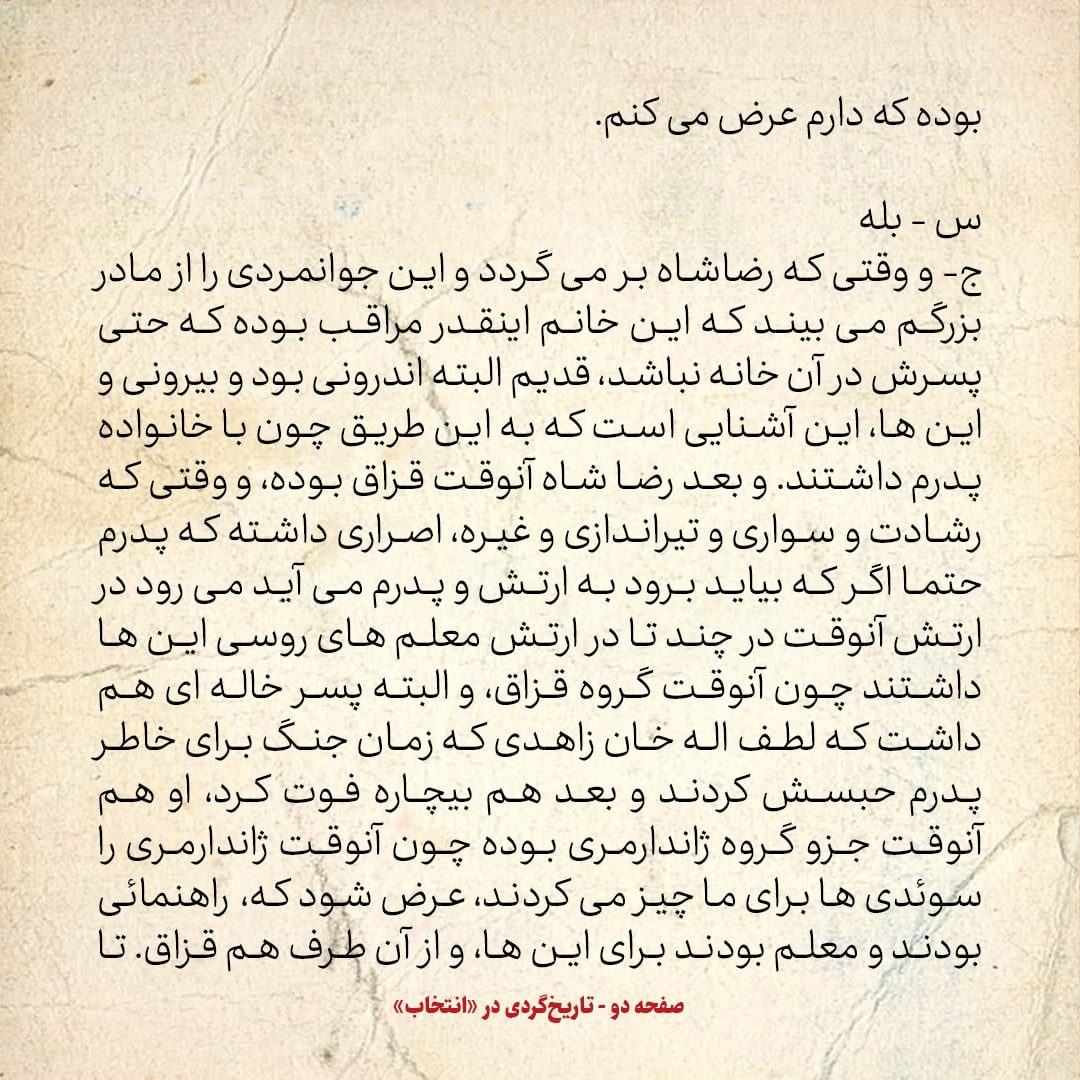 بوده که دارم عرض می کنم.
س - بله
ج- و وقتی که رضاشاه بر می گردد و این جوانمردی را از مادر
بزرگم می بیند که این خانم اینقدر مراقب بوده که حتی
پسرش در آن خانه نباشد، قدیم البته اندرونی بود و بیرونی و
این ها، این آشنایی است که به این طریق چون با خانواده
پدرم داشتند. و بعد رضا شاه آنوقت قزاق بوده، و وقتی که
رشادت و سواری و تیراندازی و غیره، اصراری داشته که پدرم
حتما اگر که بیاید برود به ارتش و پدرم می آید می رود در
ارتش آنوقت در چند تا در ارتش معلم های روسی این ها
داشتند چون آنوقت گروه قزاق، و البته پسر خاله ای هم
داشت که لطف اله خان زاهدی که زمان جنگ برای خاطر
پدرم حبسش کردند و بعد هم بیچاره فوت کرد، او هم
آنوقت جزو گروه ژاندارمری بوده چون آنوقت ژاندارمری را
سوئدی ها برای ما چیز می کردند، عرض شود که، راهنمائی
بودند و معلم بودند برای این ها، و از آن طرف هم قزاق. تا
صفحه دو - تاریخ‌گردی در «انتخاب»